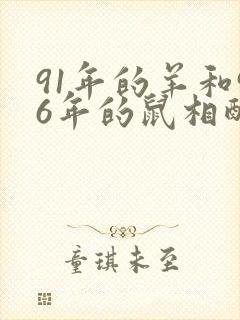 91年的羊和9
6年的鼠相配
童琪未至